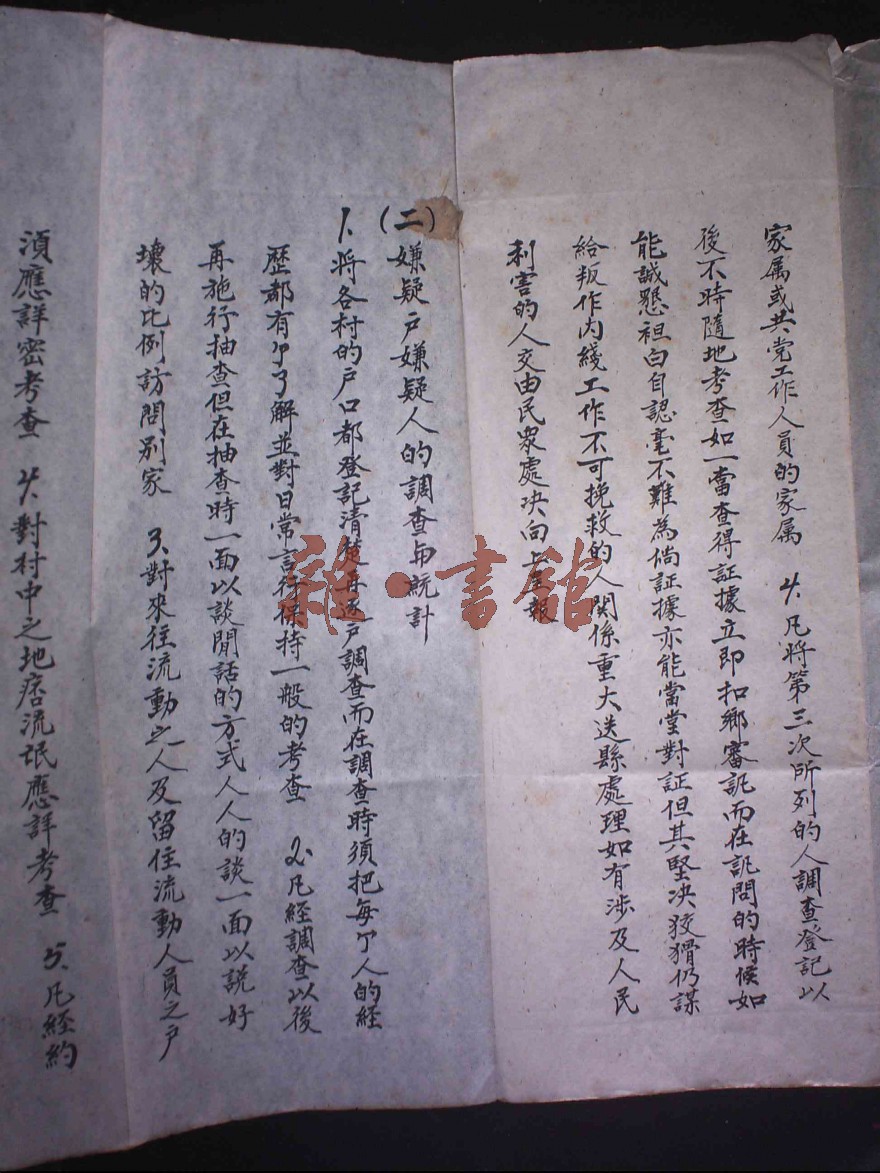 家属或共党工作人員的家属 4、凡將第三次所列的人調查登記以
後不時隨地考查如一當查得証據立即扣鄉審訊而在訊問的時候如
能誠懇袒白自認毫不難為倘証據亦能當堂對証但其堅决狡猾仍謀
給叛作内綫工作不可挽救的人関係重大送縣處理如有涉及人民
利害的人交由民衆處决向上呈報
(二)嫌疑户嫌疑人的調查与統計
1、将各村的户口都登記清楚再逐户調查而在調查時須把每个人的経
歷都有个了解並對日常言行保持一般的考查 2、凡經調查以後
再施行抽查但在抽查時一面以談閒話的方式人人的談一面以説好
壞的比例訪問别家 3、對來往流動之人及留住流動人員之户
須應詳密考查 4、對村中之地痞流氓應詳考查 5、凡経約
雜·書館